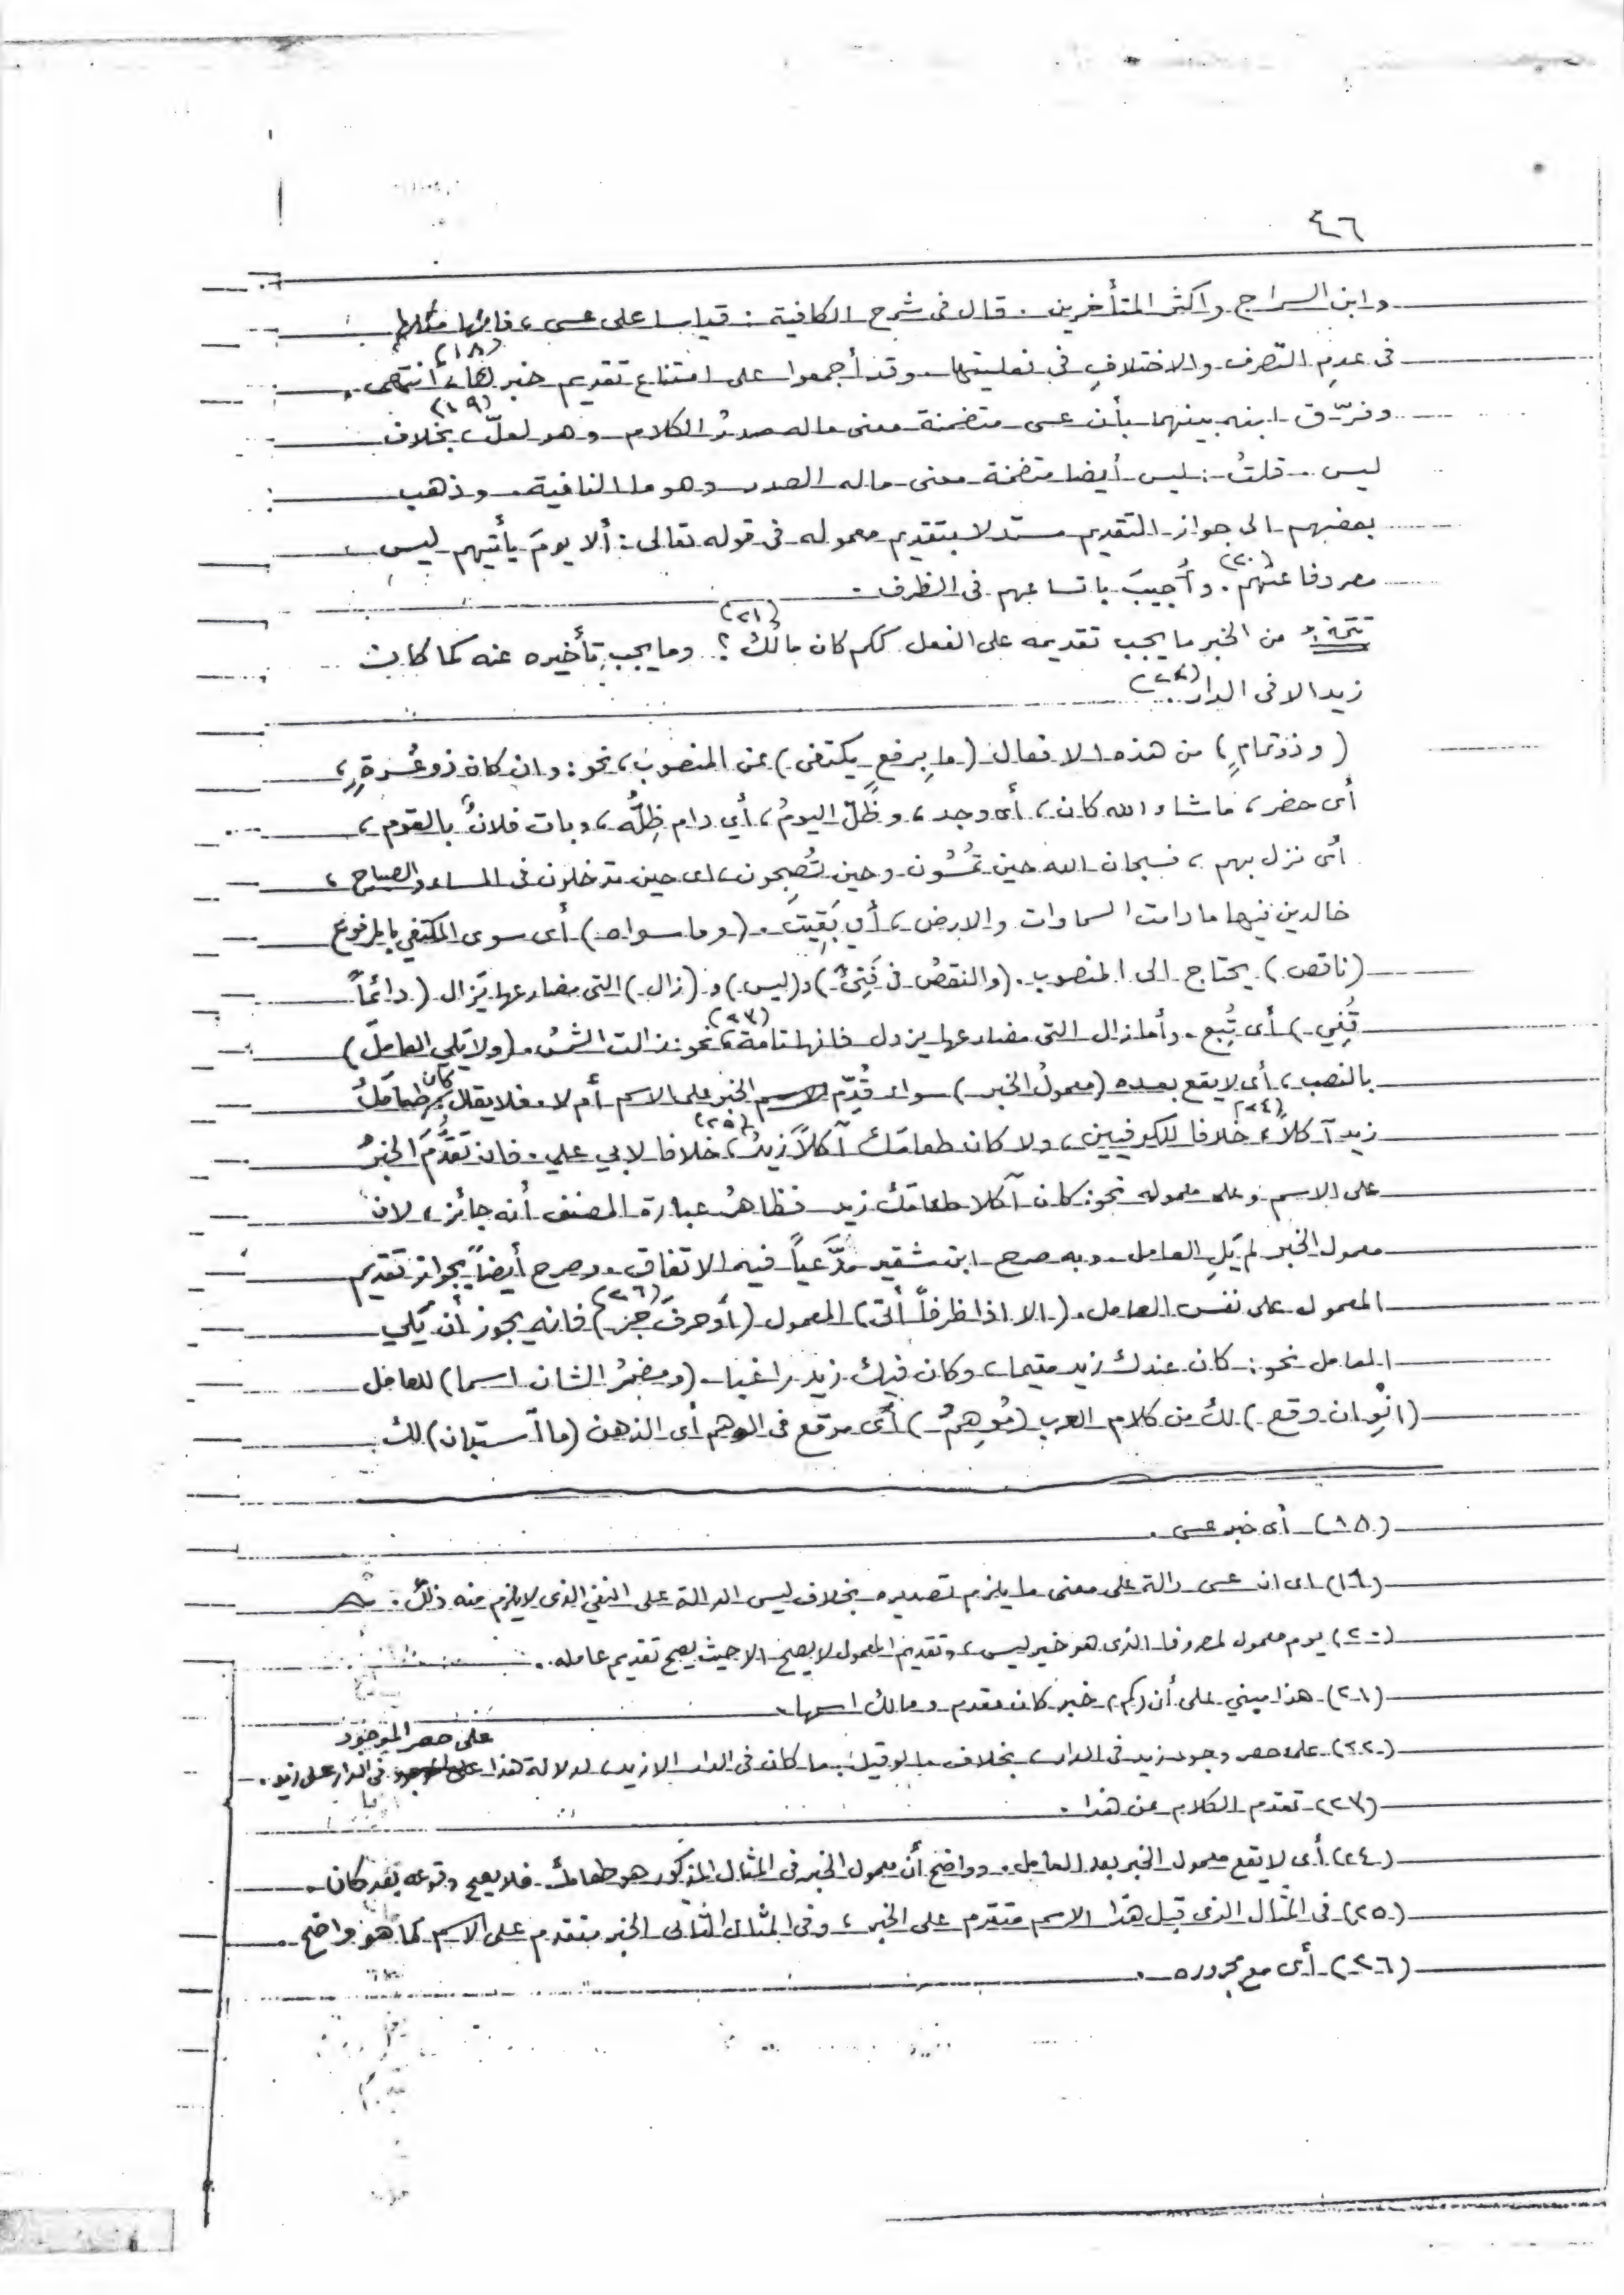 ٤٦
وابن السراج واكثر المتأخرين . قال فى شرح الكافية : قياسا على عسى ، فانها مثلها
فى عدم التصرف والاختلاف فى فعليتها . وقد أجمعوا على امتناع تقديم خبرها (١٨) انتهى .
وفرّق ابنه بينهما بأن عسى متضمنة معنى ماله صدرُ الكلام وهو لعلّ (١٩) بخلاف
ليس . قلتُ : ليس أيضا متضمنة معنى ماله الصدر وهو ما النافية . وذهب
بعضهم الى جواز التقديم مستدلا بتقديم معموله فى قوله تعالى : ألا يومَ يأتيهم ليس
مصروفا عنهم (٢٠) . وأُجيبَ باتساعهم فى الظرف .
تتمة : من الخبر ما يجب تقديمه على الفعل ككم كان مالُك (٢١) ؟ . وما يجب تأخيره عنه كما كان
زيد الا فى الدار (٢٢) .
( وذو تمامٍ ) من هذه الافعال ( ما برفعٍ يكتفى ) عن المنصوب ، نحو : وان كان ذو عُسرةٍ ،
أى حضر ، ماشاء الله كان ، أى وجد ، وظَلّ اليومُ ، أي دام ظِلُّه ، وبات فلانٌ بالقوم ،
أى نزل بهم ، فسبحان الله حين تُمْسُون وحين تُصبِحون ، اى حين تدخلون فى المساء والصباح ،
خالدين فيها مادامت السماوات والارض ، أي بَقِيَتْ . ( وما سواه ) أى سوى المكتفي بالمرفوع
( ناقص ) يحتاج الى المنصوب . ( والنقصُ فى فَتِئَ ) و ( ليس ) و ( زال ) التى مضارعها يَزال ( دائماً
قُفِي ) أى تُبِع . وأما زال التى مضارعها يزول فانها تامة (٢٣) نحو : زالت الشمسُ . ( ولا يَلي العاملَ )
بالنصب ، أى لا يقع بعده ( معمولُ الخبر ) سواء قُدّم الخبر على الاسم أم لا . فلا يقال كان طعامَك
زيد آكلاً (٢٤) خلافا للكوفيين ، ولا كان طعامَك آكلاً زيدٌ (٢٥) خلافا لابي علي . فان تَقَدَّمَ الخبرُ
على الاسم وعلى معموله نحو : كان آكلا طعامَك زيد فظاهرُ عبارة المصنف أنه جائز ، لان
معمول الخبر لم يَلِ العامل . وبه صرح ابن شقير مدَّعياً فيه الاتفاق . وصرح أيضاً بجواز تقديم
المعمول على نفس العامل . ( الا اذا ظرفاً أتى ) المعمول ( أو حرفَ جر (٢٦) ) فانه يجوز أن يَلي
العامل نحو : كان عندك زيد مقيما ، وكان فيك زيد راغبا . ( ومضمرُ الشان اسما ) للعامل
( انْوِ ان وقع ) لك من كلام العرب ( مُوهِمٌ ) أى موقع فى الوهم أى الذهن ( ما استبان ) لك
(١٨) أى خبر عسى .
(١٩) اى ان عسى دالة على معنى ما يلزم تصديره بخلاف ليس الدالة على النفي الذى لا يلزم منه ذلك .
(٢٠) يوم معمول لمصروفا الذى هو خبر ليس ، وتقديم المعمول لا يصح الا حيث يصح تقديم عامله .
(٢١) هذا مبني على أن ( كم ) خبر كان مقدم ومالك اسمها .
(٢٢) على حصر وجود زيد فى الدار ، بخلاف ما لو قيل : ما كان فى الدار الا زيد ، لدلالة هذا على حصر الموجود فى الدار على زيد .
(٢٣) تقدم الكلام عن هذا .
(٢٤) أى لا يقع معمول الخبر بعد العامل . وواضح أن معمول الخبر فى المثال المذكور هو طعامك . فلا يصح وقوعه بعد كان .
(٢٥) فى المثال الذى قبل هذا الاسم متقدم على الخبر ، وفى المثال الثانى الخبر متقدم على الاسم كما هو واضح .
(٢٦) أى مع مجروره .